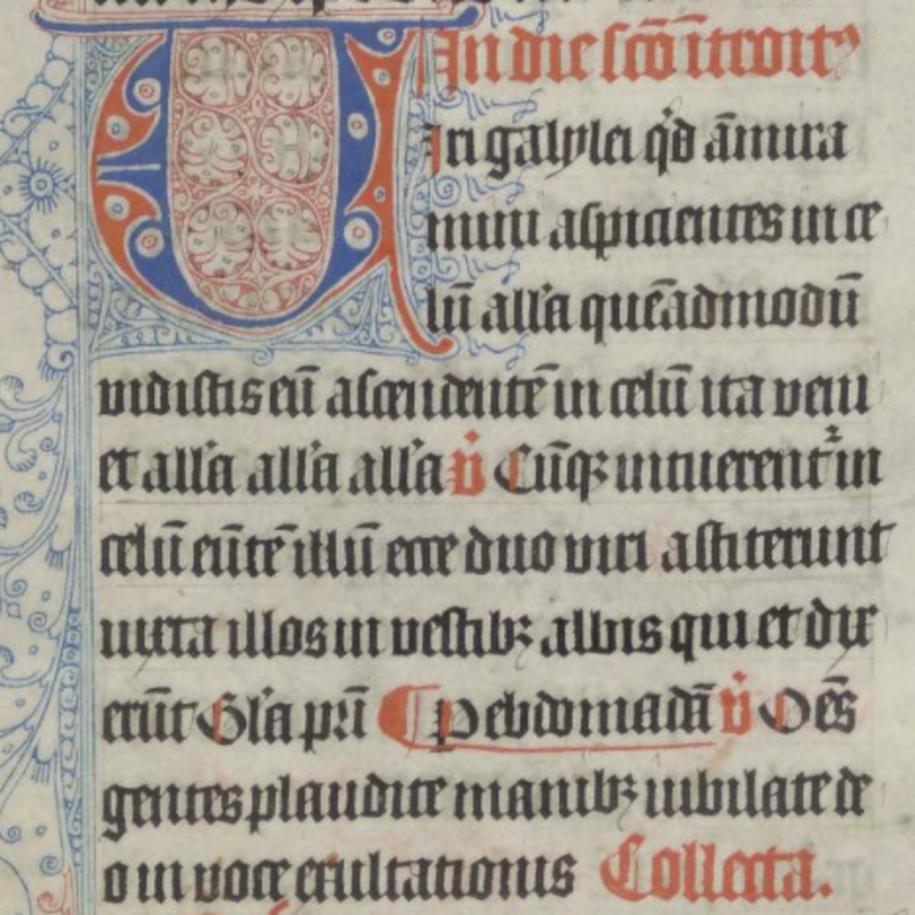 In die scō itroitꝰ
Viri galylei qͥd āmira
mini aspicientes in ce
lū all'a quēadmodū
vidistis eū ascendentē in celū ita veni
et all'a all'a all'a v̇ Cūqꝫ intuerent᷑ in
celū eūtē illū ecce duo viri astiterunt
iuxta illos in vestibꝫ albis qui et dix
erūt Gl'a pr̄i ¶ P ebdomadā v̇ Oēs
gentes plaudite manibꝫ iubilate de
o in voce exultationis Collecta.